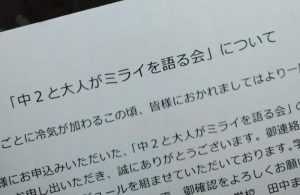 「中2と大人がミライを語る会」について
ごとに冷気が加わるこの頃、皆様におかれましてはより一層
様にお申込みいただいた、「中2と大人がミライを語る会」の
お申し出いただき、誠にありがとうございます。御連絡
ジュールを組ませていただいております。学
御確認をよろしくお願
学校 田中